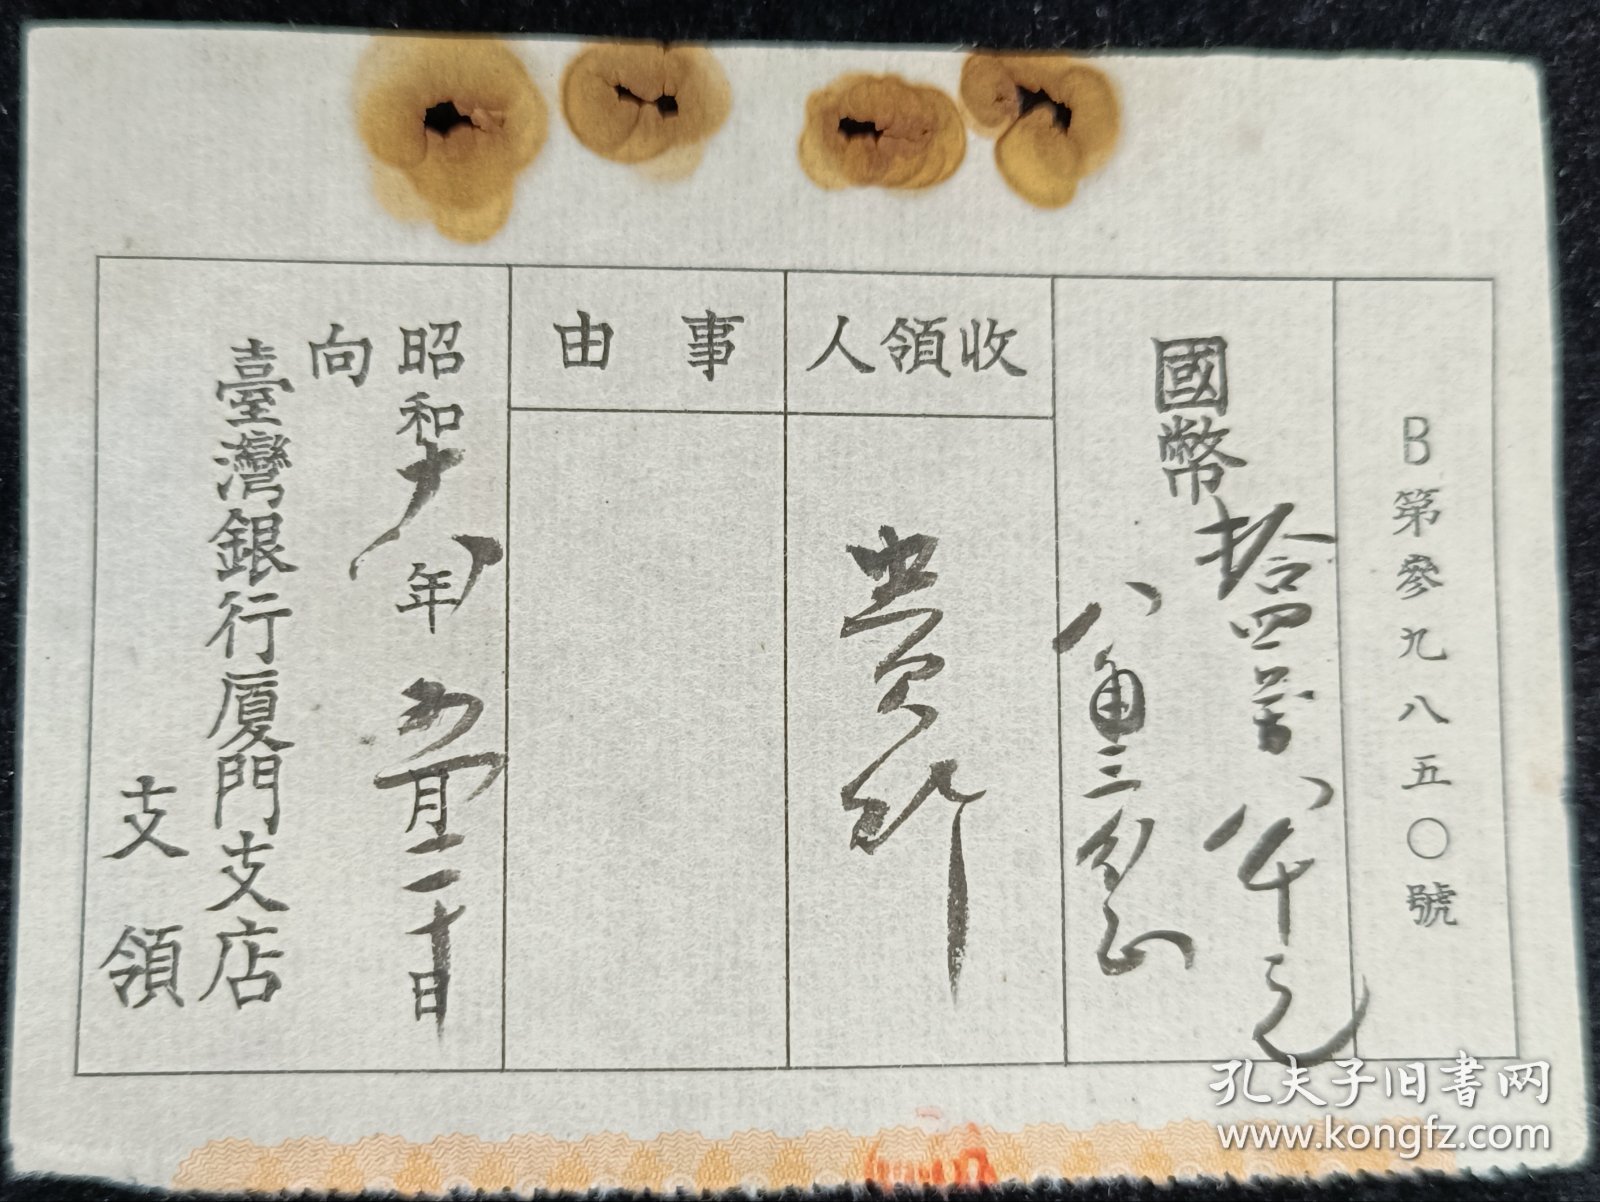 B第參九八五〇號
國幣拾四萬八千元
八角三分正
收領人
貴行
事由
昭和十八年五月二十日
向
臺灣銀行厦門支店
支領
孔夫子旧書网
www.kongfz.com